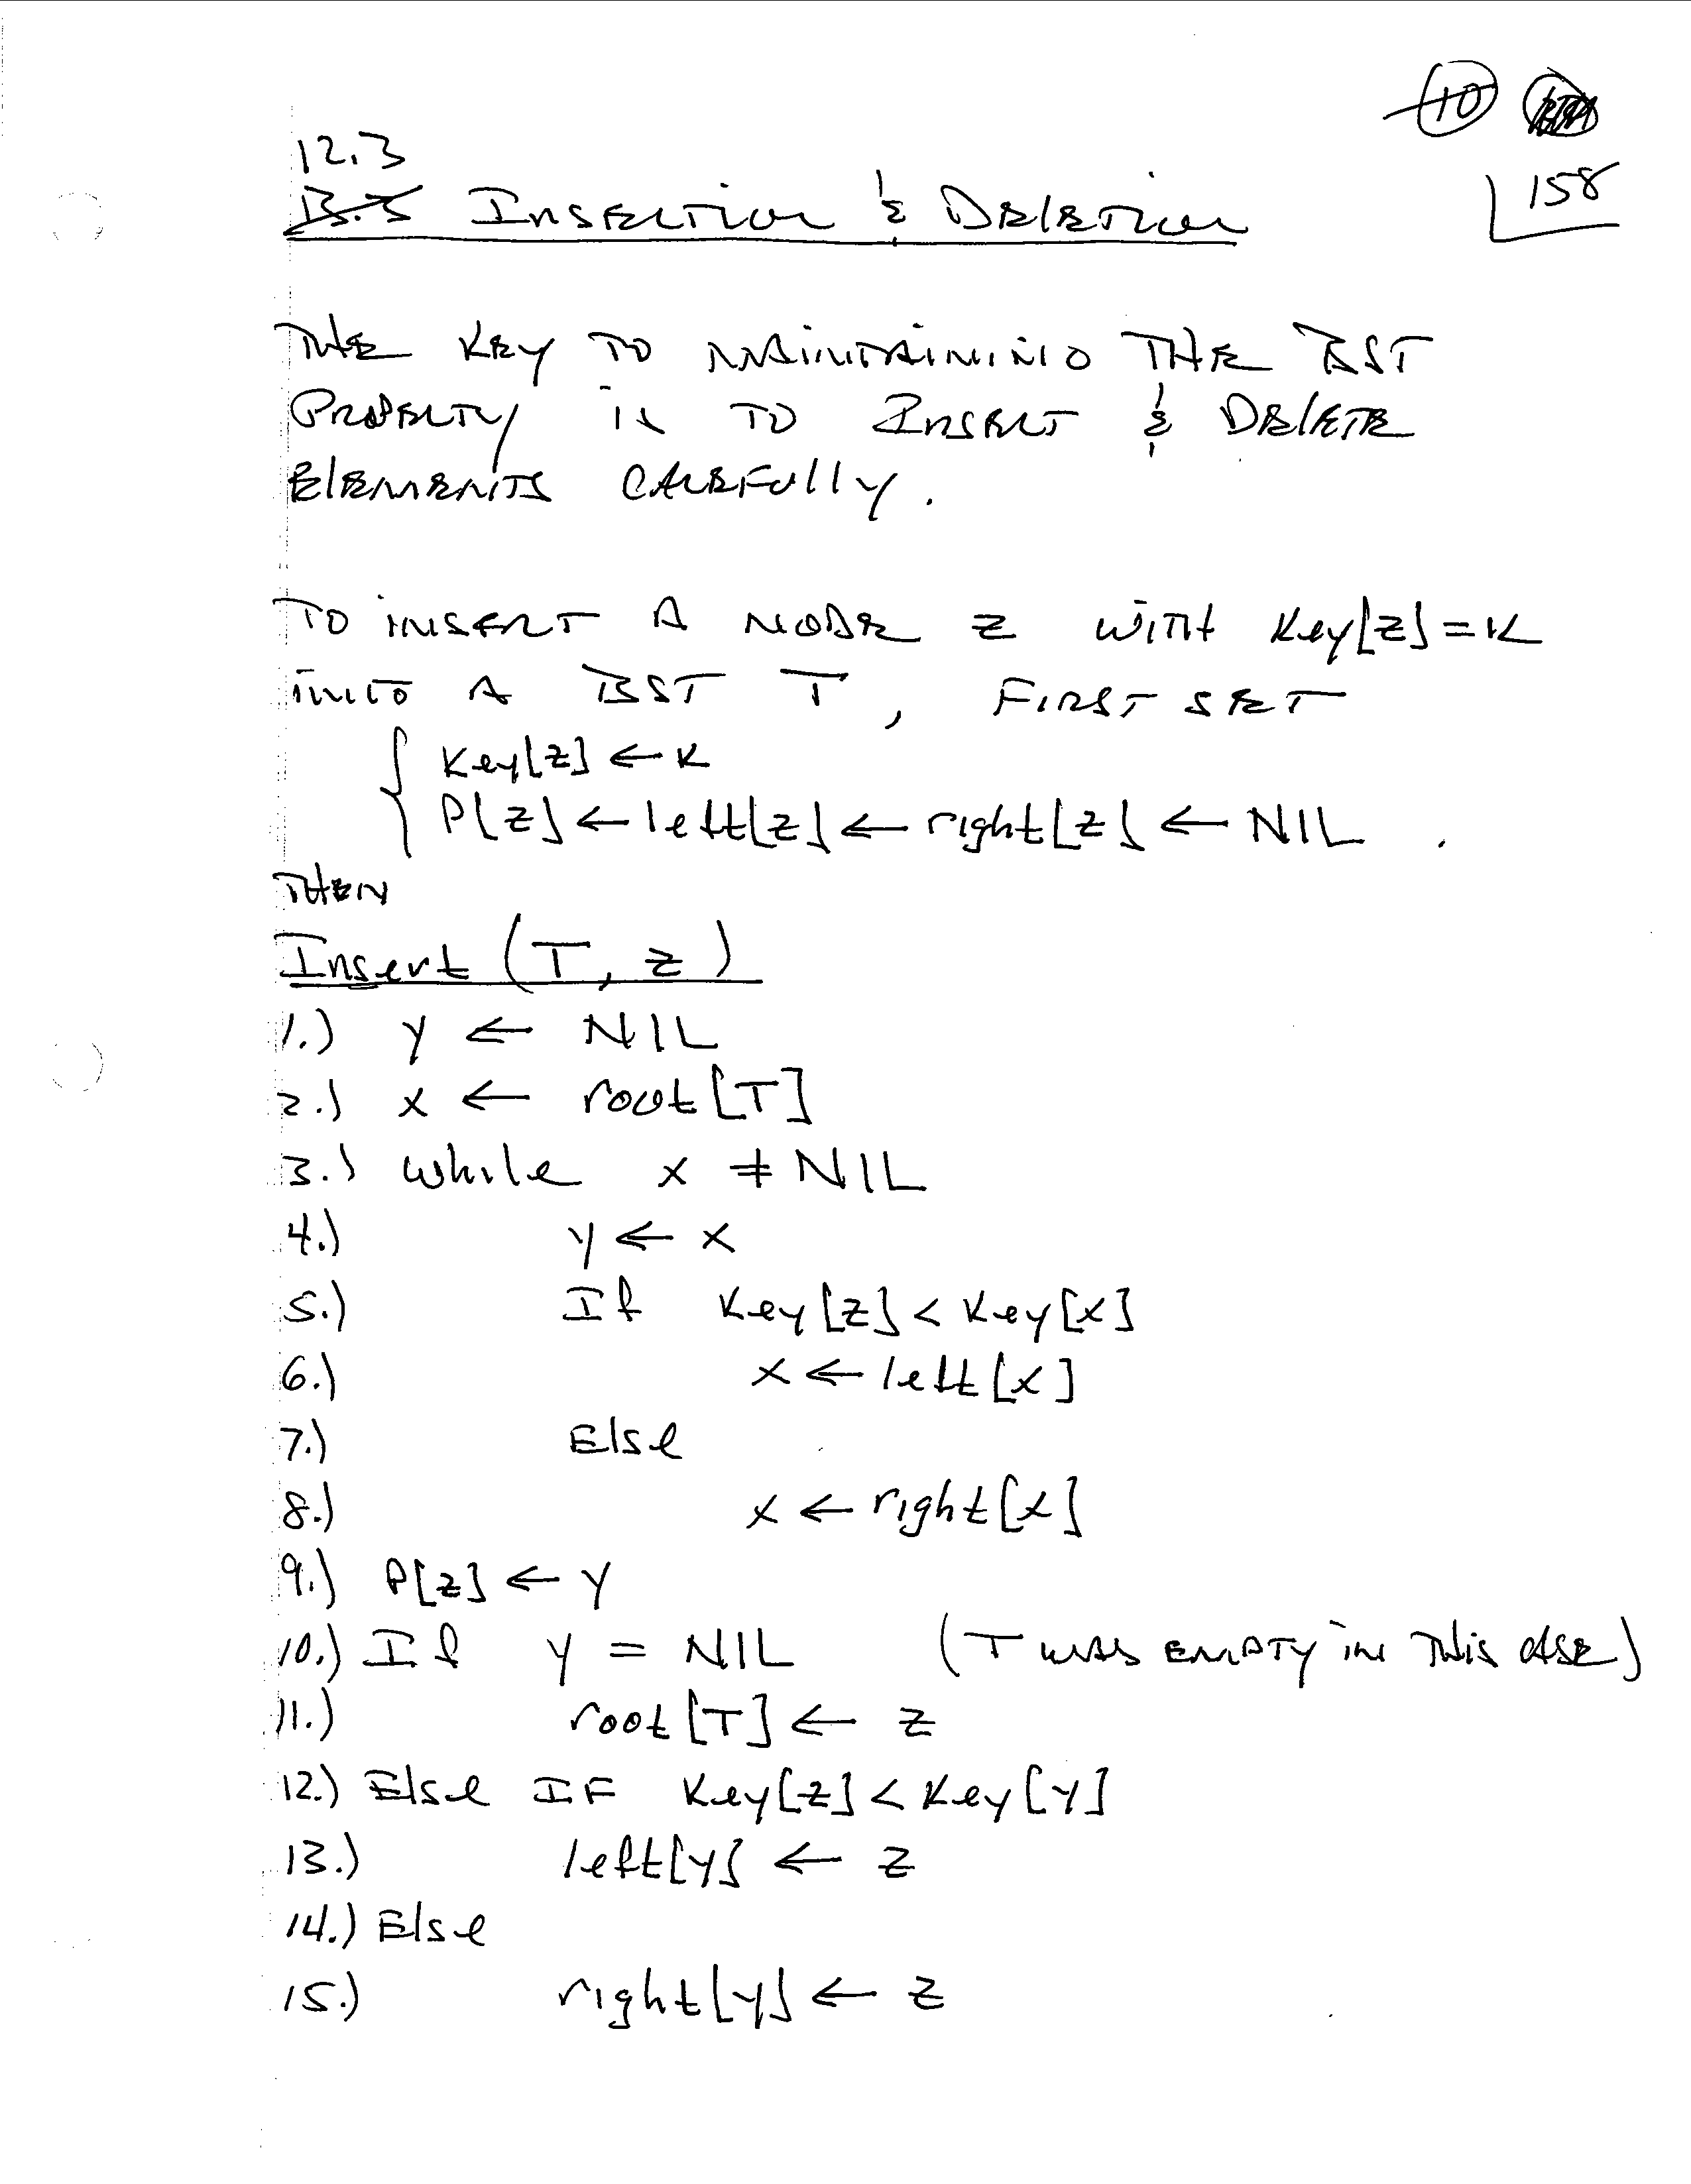 10
158
12.3
13.3 Insertion & Deletion
The key to maintaining the BST
Property is to Insert & Delete
Elements carefully.
To insert a node z with Key[z]=k
into a BST T, first set
Key[z] ← k
P[z] ← left[z] ← right[z] ← NIL .
Then
Insert (T, z)
1.) y ← NIL
2.) x ← root[T]
3.) while x ≠ NIL
4.) y ← x
5.) If Key[z] < Key[x]
6.) x ← left[x]
7.) Else
8.) x ← right[x]
9.) P[z] ← y
10.) If y = NIL (T was empty in this case)
11.) root[T] ← z
12.) Else IF Key[z] < Key[y]
13.) left[y] ← z
14.) Else
15.) right[y] ← z